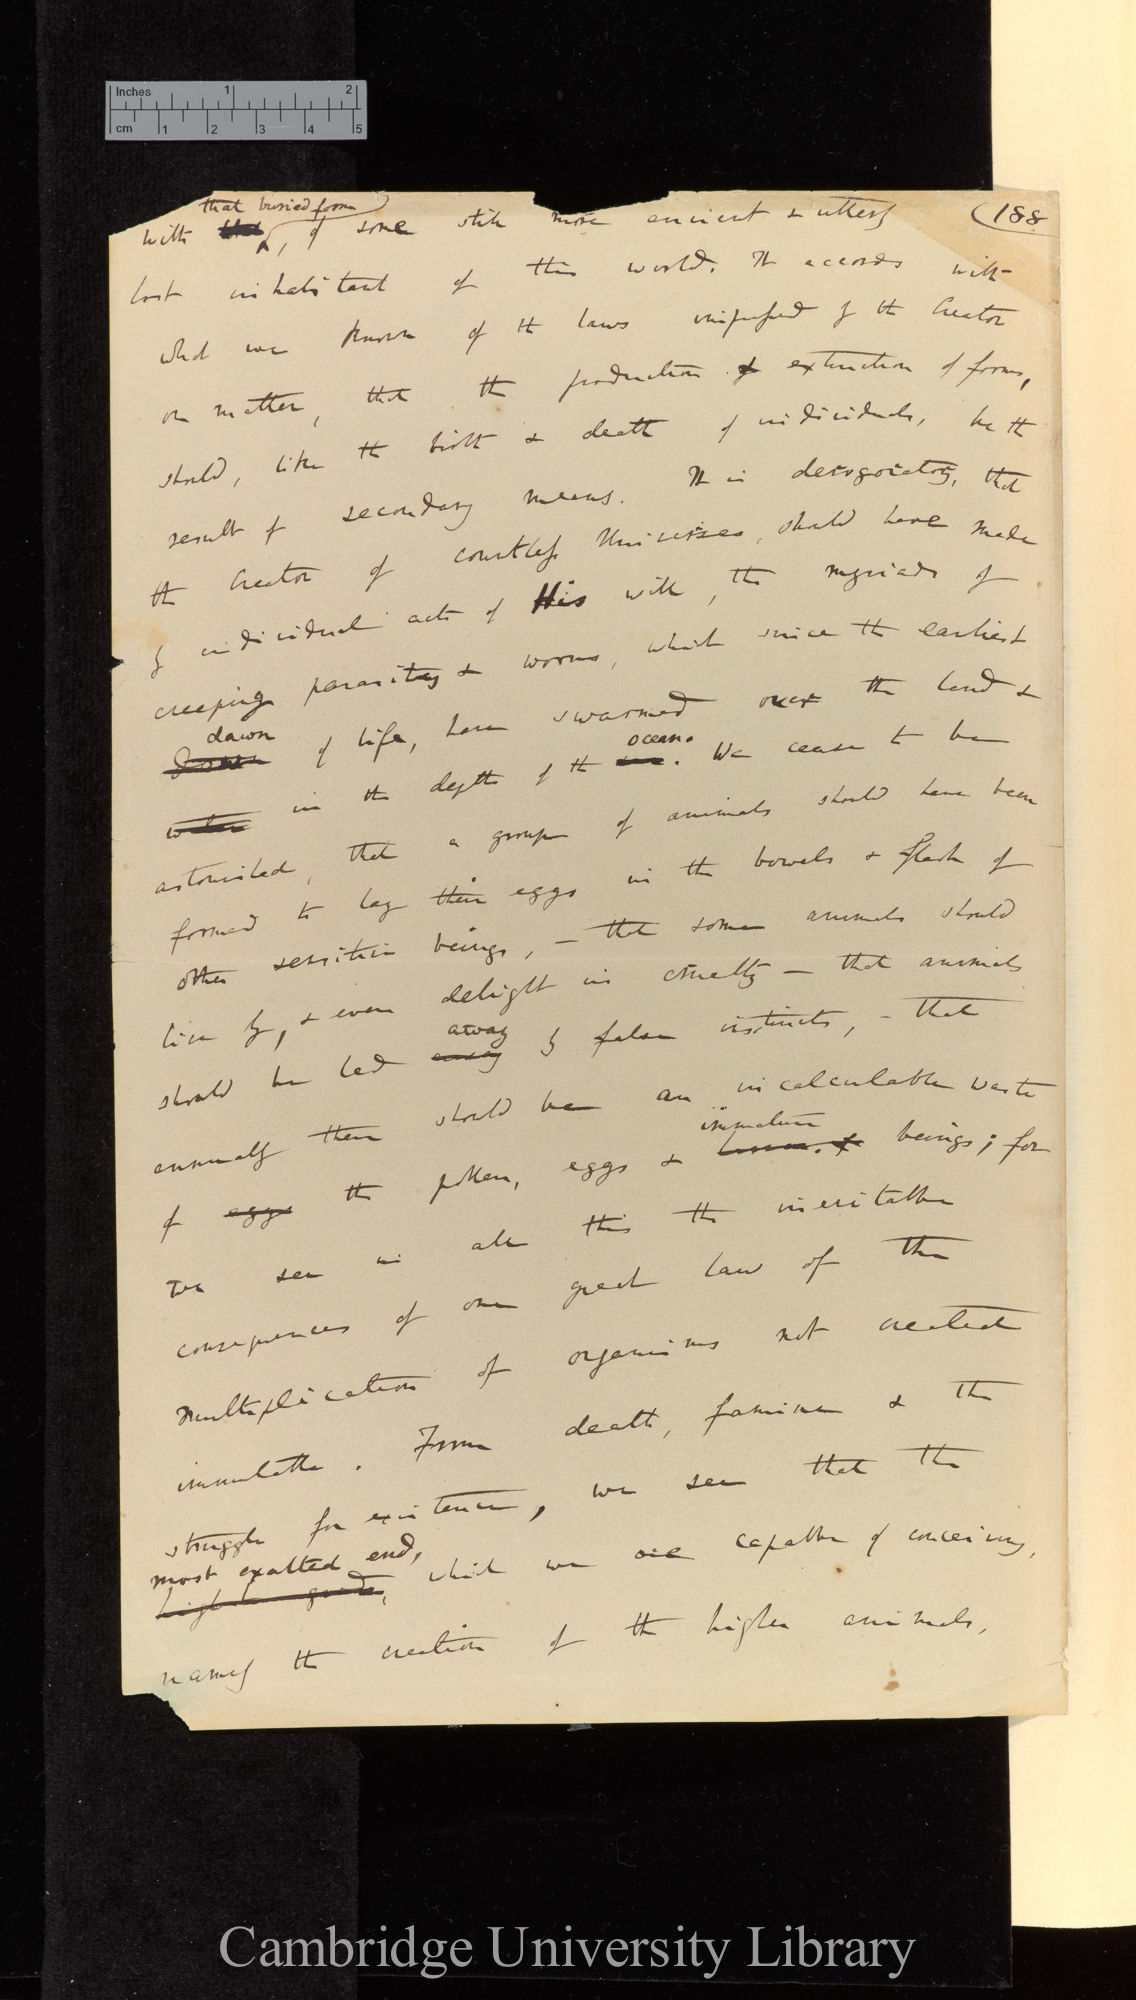 Inches 1 2
cm 1 2 3 4 5
(188
that buried form
with that, of some still more ancient & utterly
lost inhabitant of this world. It accords with
what we know of the laws impressed by the Creator
on matter, that the production & extinction of forms,
should, like the birth & death of individuals, be the
result of secondary means. It is derogatory, that
the Creator of countless Universes, should have made
by individual acts of His will, the myriads of
creeping parasites & worms, which since the earliest
dawn
dawn of life, have swarmed over the land &
ocean.
water in the depths of the sea. We cease to be
astonished, that a group of animals should have been
formed to lay their eggs in the bowels & flesh of
other sensitive beings, – that some animals should
live by, & even delight in cruelty – that animals
away
should be led away by false instincts, – that
annually there should be an incalculable waste
immature
of eggs the pollen, eggs & beings; for
we see in all this the inevitable
consequences of one great law of the
multiplication of organisms not created
immutable. From death, famine & the
struggle for existence, we see that the
most exalted end,
highest good, which we are capable of conceiving,
namely the creation of the higher animals,
Cambridge University Library